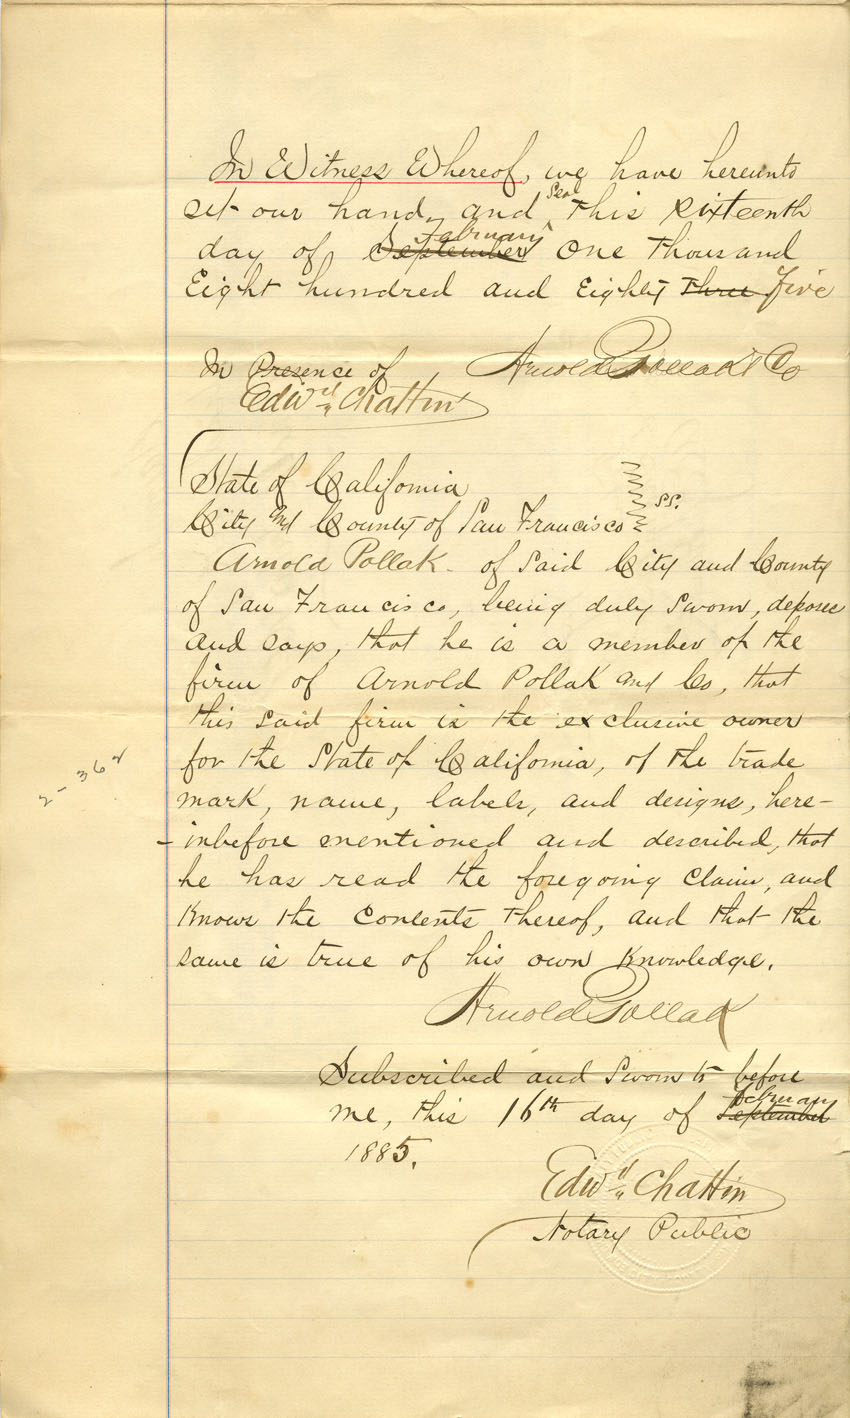 In Witness Whereof, we have hereunto
set our hand, and Seal this sixteenth
day of September February One thousand
Eight hundred and Eighty Three Five
In Presence of Arnold Pollak & Co
Edwd Chattin
State of California
City and County of San Francisco ss.
Arnold Pollak of said City and County
of San Francisco, being duly sworn, deposes
and says, that he is a member of the
firm of Arnold Pollak and Co, that
this said firm is the exclusive owner
for the State of California, of the trade
mark, name, labels, and designs, here-
-inbefore mentioned and described, that
he has read the foregoing Claim, and
Knows the Contents thereof, and that the
same is true of his own Knowledge.
Arnold Pollak
Subscribed and Sworn to before
me, this 16th day of September February
1885.
Edwd Chattin
Notary Public
2-362